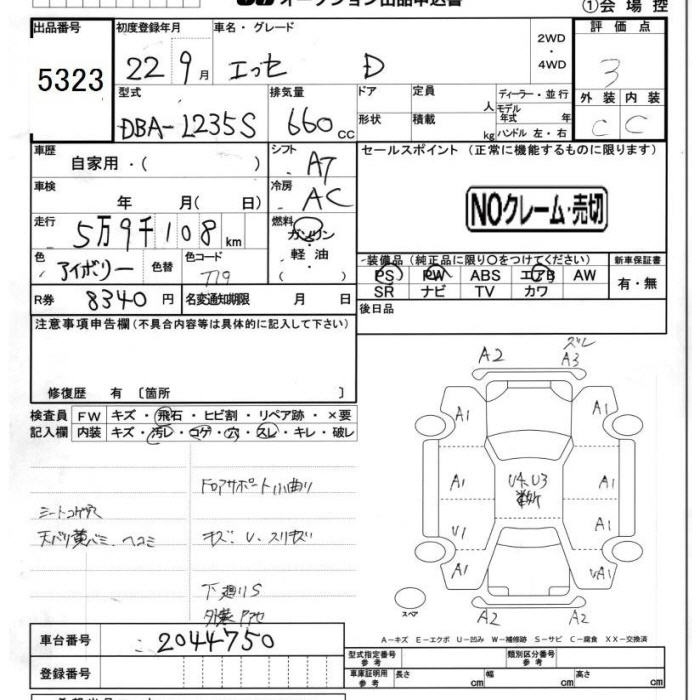 オークション出品申込書
①会場控
出品番号 初度登録年月 車名・グレード 評価点
5323 22 9月 エッセ D 2WD・4WD 3
型式 排気量 ドア 定員 人 ディーラー・並行 外装 内装
DBA-L235S 660cc 形状 積載 kg モデル年式 年 ハンドル 左・右 C C
車歴 自家用・( ) シフト AT セールスポイント (正常に機能するものに限ります)
車検 年 月( 日) 冷房 AC
NOクレーム・売切
走行 5万9千108km 燃料 ガソリン・軽油・( )
色 アイボリー 色替 色コード T19
装備品(純正品に限り○をつけてください) 新車保証書
PS PW ABS エアB AW 有・無
SR ナビ TV カワ
R券 8340円 名変通知期限 月 日
後日品
注意事項申告欄(不具合内容等は具体的に記入して下さい)
修復歴 有 〔箇所 〕
検査員 FW キズ・飛石・ヒビ割・リペア跡・×要
記入欄 内装 キズ・汚レ・コゲ・穴・スレ・キレ・破レ
FロアサポートS小曲り
シートコゲ穴
天バリ黄バミ、ヘコミ キズ・U・スリキズ
下廻りS
A2 ズレ A3
A1 A1
A1 U4.U3 A1
U1 A1
A1 UA1
A2 A2
スペア
A-キズ E-エクボ U-凹み W-補修跡 S-サビ C-腐食 XX-交換済
車台番号 2044750
登録番号
型式指定番号 参考 類別区分番号 参考
車庫証明用 参考 長さ cm 幅 cm 高さ cm